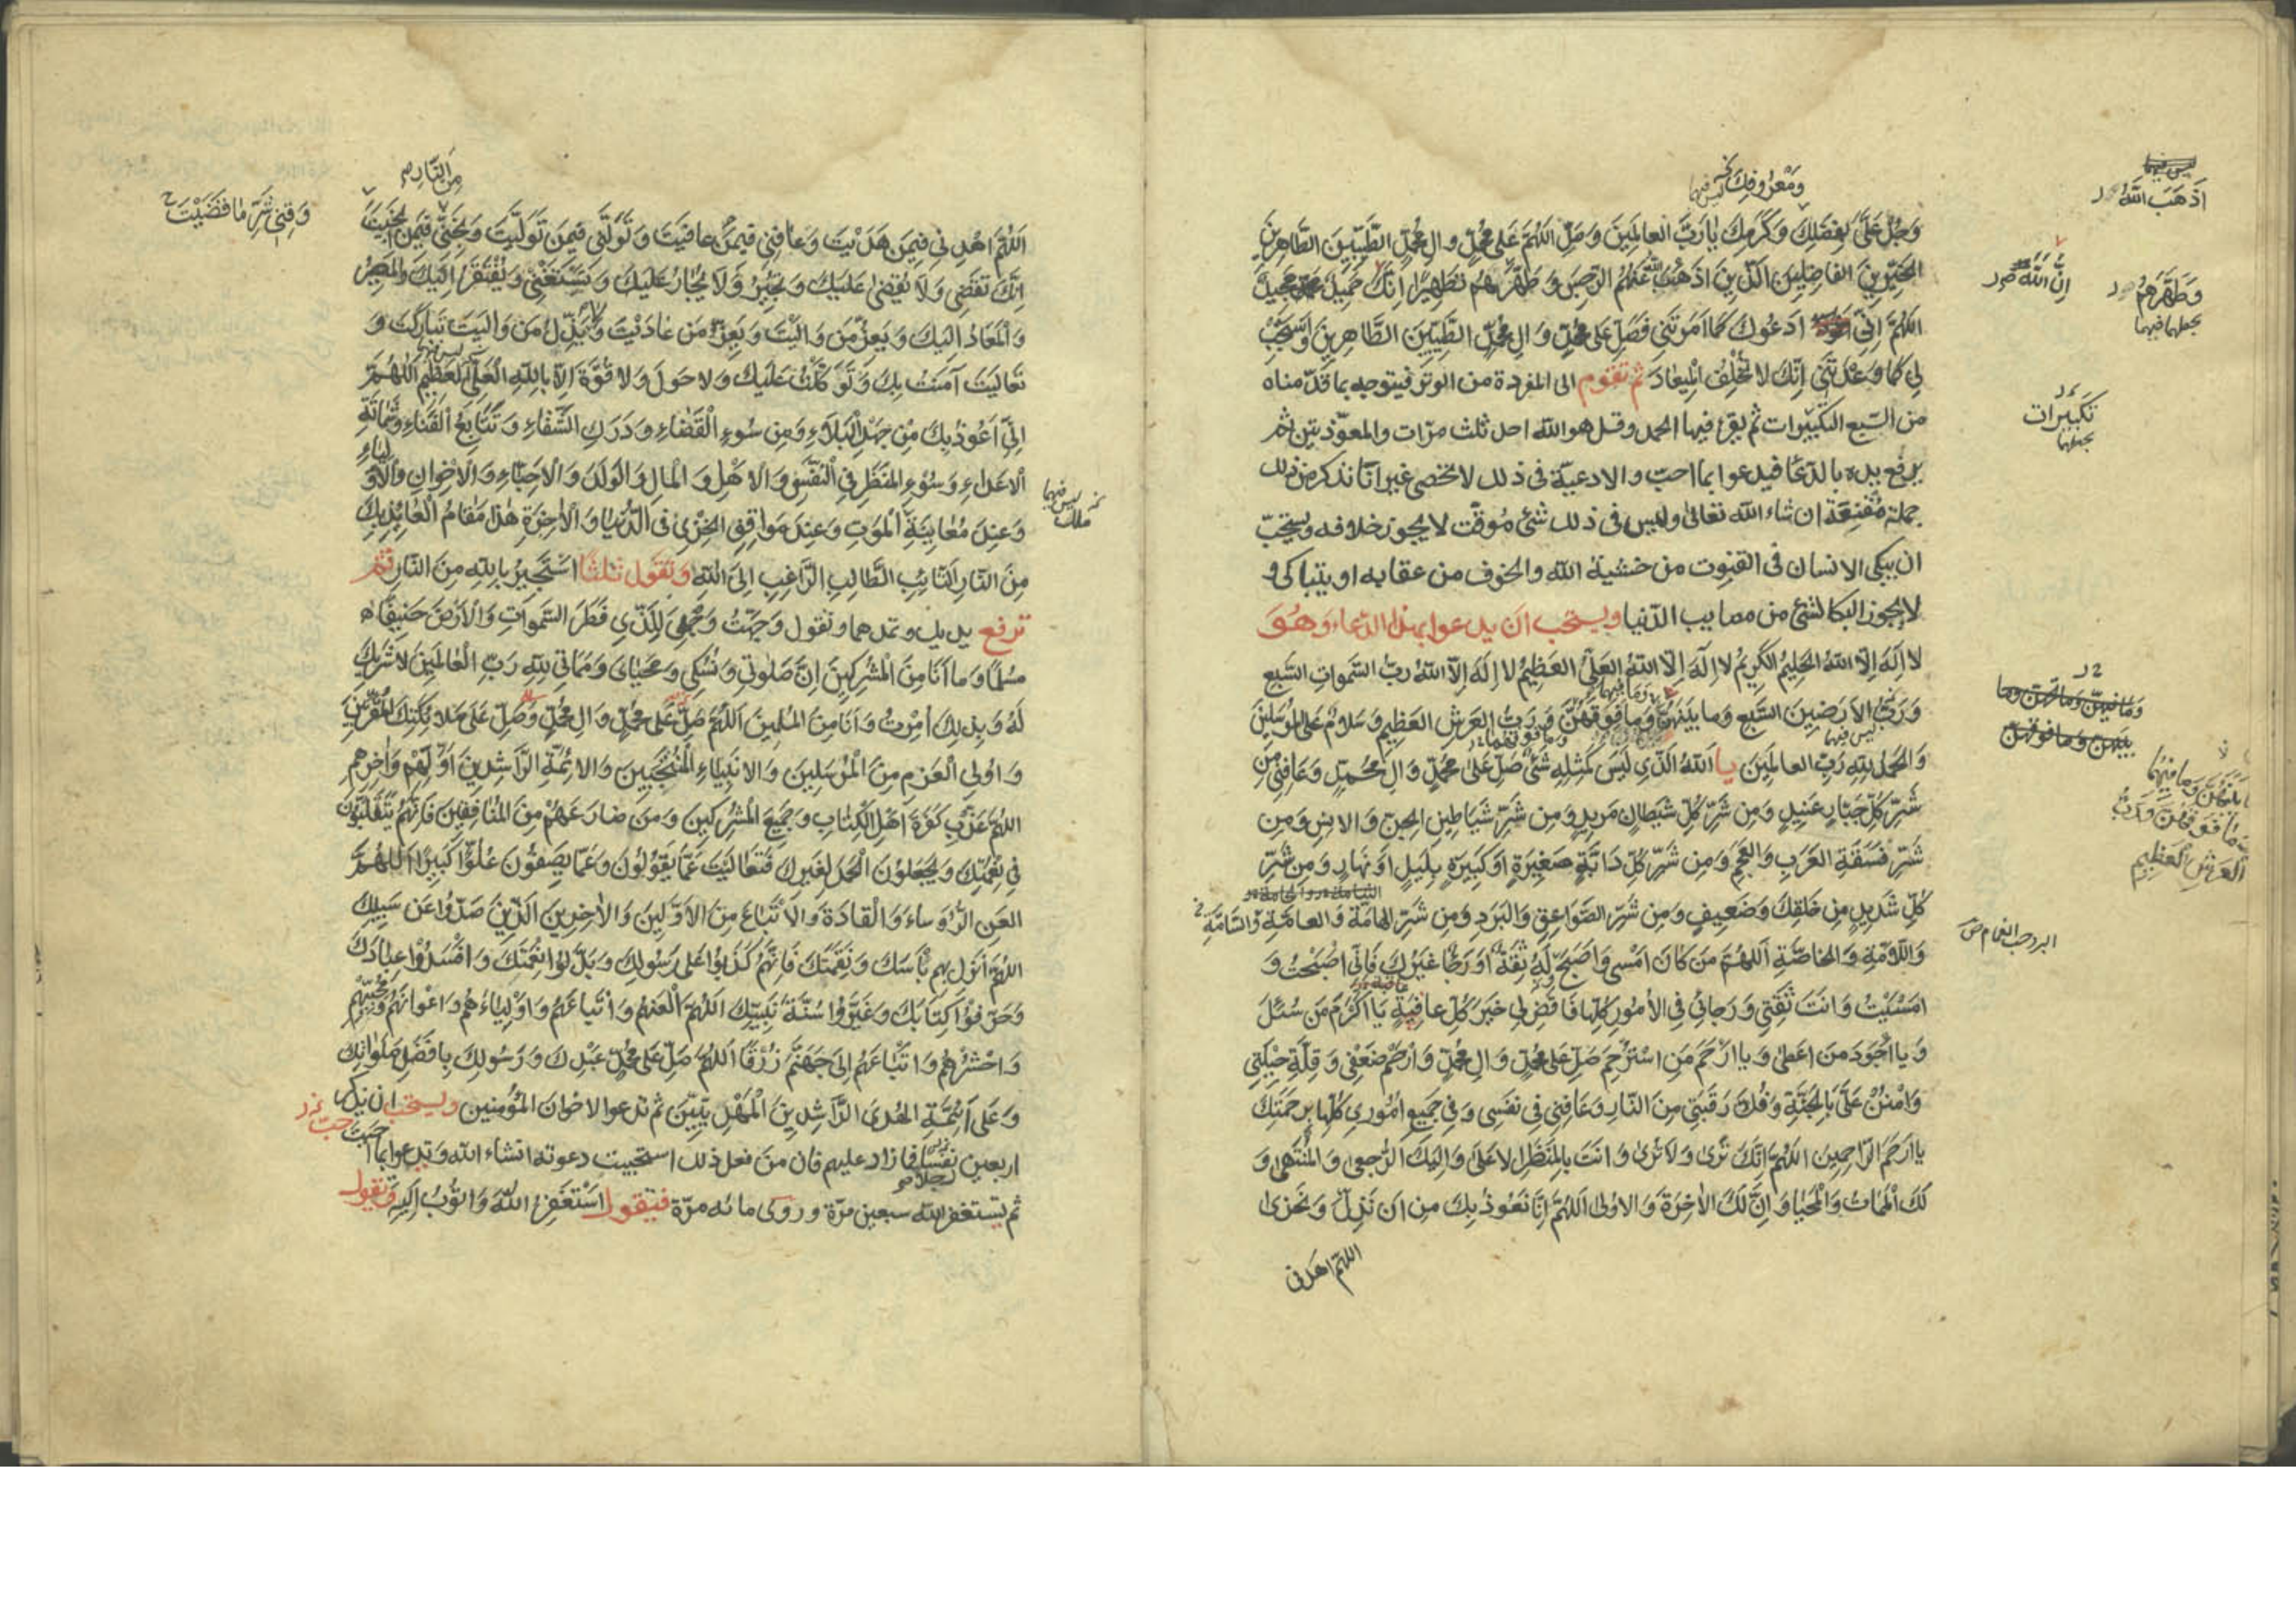 ومعروفك
ليس فيها
وَجُدْ عَلَيَّ بِفَضْلِكَ وَكَرَمِكَ يَا رَبَّ العالَمِينَ وَصَلِّ اللهُمَّ عَلى مُحَمَّدٍ وال مُحَمَّدٍ الطَّيِّبِينَ الطَّاهِرِينَ
الخَيِّرِينَ الفاضِلِينَ الَّذِينَ اذْهَبْتَ عَنْهُمُ الرِّجْسَ وَطَهَّرْتَهُمْ تَطْهِيرًا إِنَّكَ حَمِيدٌ مَجِيدٌ
اللهُمَّ اِنِّي ادْعُوكَ كَمَا اَمَرْتَنِي فَصَلِّ عَلى مُحَمَّدٍ وَالِ مُحَمَّدٍ الطَّيِّبِينَ الطَّاهِرِينَ وَاسْتَجِبْ
لِي كَمَا وَعَدْتَنِي اِنَّكَ لا تُخْلِفُ المِيعادَ ثم تقوم الى المفردة من الوتر فيتوجه بما قدّمناه
من السّبع التكبيرات ثم يقرء فيها الحمد وقل هو الله احد ثلث مرّات والمعوّذتين ثم
يرفع يديه بالدّعا فيدعوا بما احبّ والادعيّة فى ذلك لا تحصى غير انّا نذكر من ذلك
جملة مُقْنِعَة ان شاء الله تعالى وليس فى ذلك شئ مُوقّت لا يجوز خلافه ويستحبّ
ان يبكى الانسان فى القنوت من خشية الله والخوف من عقابه او يتباكى و
لا يجوز البكا لشئ من مصايب الدّنيا ويستحب ان يدعوا بهذا الدعاء وهو
لا اِلَهَ اِلاَّ اللهُ الحَلِيمُ الكَرِيمُ لا اِلَهَ اِلاَّ اللهُ العَلِيُّ العَظِيمُ لا اِلَهَ اِلاَّ اللهُ رَبُّ السَّمواتِ السَّبْع
وَرَبِّ الاَرَضِينَ السَّبْعِ وَما بَيْنَهُنَّ وَما فَوْقَهُنَّ وَرَبُّ العَرْشِ العَظِيمِ وَسَلامٌ عَلى المُرْسَلِينَ
وَالحَمْدُ لِلّهِ رَبِّ العالَمِينَ يا اَللهُ الَّذِي لَيْسَ كَمِثْلِهِ شَئٌ صَلِّ عَلى مُحَمَّدٍ وَالِ مُحَمَّدٍ وَعَافِنِي مِنْ
شَرِّ كُلِّ جَبّارٍ عَنِيدٍ وَمِنْ شَرِّ كُلِّ شَيْطانٍ مَرِيدٍ وَمِنْ شَرِّ شَيَاطِينِ الجِنِّ وَالانِسِ وَمِن
شَرِّ فَسَقَةِ العَرَبِ وَالعَجَمِ وَمِن شَرِّ كُلِّ دَابَّةٍ صَغِيرَةٍ اَوْ كَبِيرَةٍ بِلَيْلٍ اَوْ نَهَارٍ وَمِن شَرِّ
كُلِّ شَدِيدٍ مِن خَلْقِكَ وَضَعِيفٍ وَمِن شَرِّ الصَّوَاعِقِ وَالبَرَدِ وَمِن شَرِّ الهَامَّةِ وَالعامَّةِ وَالسَّامَّةِ
وَاللاّمَّةِ وَالخاصَّةِ اَللهُمَّ مَنْ كانَ اَمْسى وَاَصْبَحَ لَهُ ثِقَةٌ اَوْ رَجاءٌ غَيْرُكَ فَاِنِّي اصْبَحْتُ وَ
امْسَيْتُ وَانْتَ ثِقَتِي وَرَجائِي فِي الاُمُورِ كُلِّها فَاقْضِ لِي خَيْرَ كُلِّ عافِيَةٍ يَا اَكْرَمَ مَنْ سُئِلَ
وَيا اَجْوَدَ مَنْ اَعْطى وَيا اَرْحَمَ مَنِ اسْتُرْحِمَ صَلِّ عَلى مُحَمَّدٍ وَالِ مُحَمَّدٍ وَارْحَمْ ضَعْفِي وَقِلَّةَ حِيْلَتِي
وَامْنُنْ عَلَيَّ بِالجَنَّةِ وَفُكَّ رَقَبَتِي مِنَ النّارِ وَعَافِنِي فِي نَفْسِي وَفِي جَمِيعِ اُمُورِي كُلِّها بِرَحْمَتِكَ
يا اَرْحَمَ الرّاحِمِينَ اللهُمَّ اِنَّكَ تَرى وَلا تُرى وَانْتَ بِالمَنْظَرِ الاعْلَى وَاِلَيْكَ الرُّجْعى وَالمُنْتَهى وَ
لَكَ المَمَاتُ وَالمَحْيا وَاِنَّ لَكَ الآخِرَةَ وَالاولى اللهُمَّ اِنَّا نَعُوذُ بِكَ مِنْ انْ نَذِلَّ وَنَخْزى
اللهمّ اهدنى
ليس فيها
اَذْهَبَ اللهُ
اِنَّ اللهَ
وَطَهَّرَهُمْ
بجعلها فيها
تكبيرات
بجعلها
وما فيهنّ وما تحتهنّ وما
بينهنّ وما فوقهنّ
بَيْنَهُنَّ وَما فِيهِما
وَما فَوْقَهُنَّ وَرَبُّ
العَرْشِ العَظِيمِ
البرد حب الغمام
مِنَ النّارِ
اَللّهُمَّ اهْدِنِي فِيمَنْ هَدَيْتَ وَعَافِنِي فِيمَنْ عافَيْتَ وَتَوَلَّنِي فِيمَنْ تَوَلَّيْتَ وَنَجِّنِي فِيمَنْ نَجَّيْتَ
اِنَّكَ تَقْضِي وَلا يُقْضى عَلَيْكَ وَتُجِيْرُ وَلا يُجَارُ عَلَيْكَ وَتَسْتَغْنِي وَيُفْتَقَرُ اِلَيْكَ وَالمَصِيْرُ
وَالمَعَادُ اِلَيْكَ وَيَعِزُّ مَنْ وَالَيْتَ وَلا يَعِزُّ مَنْ عادَيْتَ وَلا يَذِلُّ مَنْ وَالَيْتَ تَبارَكْتَ وَ
تَعَالَيْتَ آمَنْتُ بِكَ وَتَوَكَّلْتُ عَلَيْكَ وَلا حَوْلَ وَلا قُوَّةَ اِلاّ بِاللهِ الْعَلِيِّ العَظِيمِ اللهُمَّ
اِنِّي اَعُوذُ بِكَ مِنْ جَهْدِ الْبَلاءِ وَمِنْ سُوءِ الْقَضاءِ وَدَرَكِ الشَّقاءِ وَتَتَابُعِ الْفَناءِ وَشَماتَةِ
اْلاَعْداءِ وَسُوْءِ المَنْظَرِ فِي النَّفْسِ وَالاَهْلِ وَالْمالِ وَالوَلَدِ وَالاَحِبَّاءِ وَالاخْوانِ وَالاَوْلِياءِ
وَعِنْدَ مُعَايَنَةِ الْمَوْتِ وَعِنْدَ مَوَاقِفِ الخِزْيِ فِي الدُّنْيا وَالآخِرَةِ هذا مَقامُ الْعائِذِ بِكَ
مِنَ النّارِ التّائِبِ الطَّالِبِ الرَّاغِبِ اِلَى اللهِ وتقول ثلثا اَسْتَجِيرُ بِاللهِ مِنَ النّارِ ثم
ترفع يديك وتمدهما وتقول وَجَّهْتُ وَجْهِيَ لِلَّذِي فَطَرَ السَّمَواتِ وَالاَرْضَ حَنِيفًا
مُسْلِمًا وَما اَنَا مِنَ المُشْرِكِينَ اِنَّ صَلوتِي وَنُسُكِي وَمَحْيَاىَ وَمَماتِي لِلّهِ رَبِّ الْعالَمِينَ لا شَرِيكَ
لَهُ وَبِذلِكَ اُمِرْتُ وَاَنَا مِنَ المُسْلِمِينَ اَللّهُمَّ صَلِّ عَلى مُحَمَّدٍ وَالِ مُحَمَّدٍ وَصَلِّ عَلى مَلائِكَتِكَ المُقَرَّبِينَ
وَاولِي الْعَزْمِ مِنَ الْمُرْسَلِينَ وَالانْبِياءِ المُنْتَجَبِينَ وَالائِمَّةِ الرَّاشِدِينَ اَوَّلِهِمْ وَآخِرِهِم
اللهُمَّ عَذِّبْ كَفَرَةَ اَهْلِ الْكِتابِ وَجَمِيعَ الْمُشْرِكِينَ وَمَنْ ضارَعَهُمْ مِنَ الْمُنافِقِينَ فَاِنَّهُمْ يَتَقَلَّبُونَ
فِي نِعْمَتِكَ وَيَجْعَلُونَ الْحَمْدَ لِغَيْرِكَ فَتَعالَيْتَ عَمّا يَقُولُونَ وَعَمّا يَصِفُونَ عُلُوًّا كَبِيرًا اَللّهُمَّ
العَنِ الرُّؤَساءَ وَالْقادَةَ وَالاَتْباعَ مِنَ الاَوَّلِينَ وَالآخِرِينَ الَّذِينَ صَدُّوا عَنْ سَبِيلِكَ
اللهُمَّ اَنْزِلْ بِهِمْ بَأْسَكَ وَنَقِمَتَكَ فَاِنَّهُمْ كَذَبُوا عَلى رَسُولِكَ وَبَدَّلُوا نِعْمَتَكَ وَافْسَدُوا عِبادَكَ
وَحَرَّفُوا كِتَابَكَ وَغَيَّرُوا سُنَّةَ نَبِيِّكَ اَللهُمَّ الْعَنْهُمْ وَاَتْباعَهُمْ وَاَوْلِياءَهُمْ وَاَعْوانَهُمْ وَمُحِبِّيهِمْ
وَاحْشُرْهُمْ وَاَتْباعَهُمْ اِلى جَهَنَّمَ زُرْقًا اَللهُمَّ صَلِّ عَلى مُحَمَّدٍ عَبْدِكَ وَرَسُولِكَ بِافْضَلِ صَلَواتِكَ
وَعَلى اَئِمَّةِ الهُدى الرَّاشِدِينَ الْمَهْدِيِّينَ ثم تدعوا لاخوان المُؤمنين ويستحب ان يذكر
اربعين نفسا فما زاد عليهم فان من فعل ذلك استجيبت دعوته انشاء الله وتدعوا بما احببت
ثم تستغفر الله سبعين مرّة وروى مائه مرّة فتقول اَسْتَغْفِرُ اللهَ وَاَتُوْبُ اِلَيْهِ وتقول
وَقِنِي شَرَّ مَا قَضَيْتَ
ليس فيها